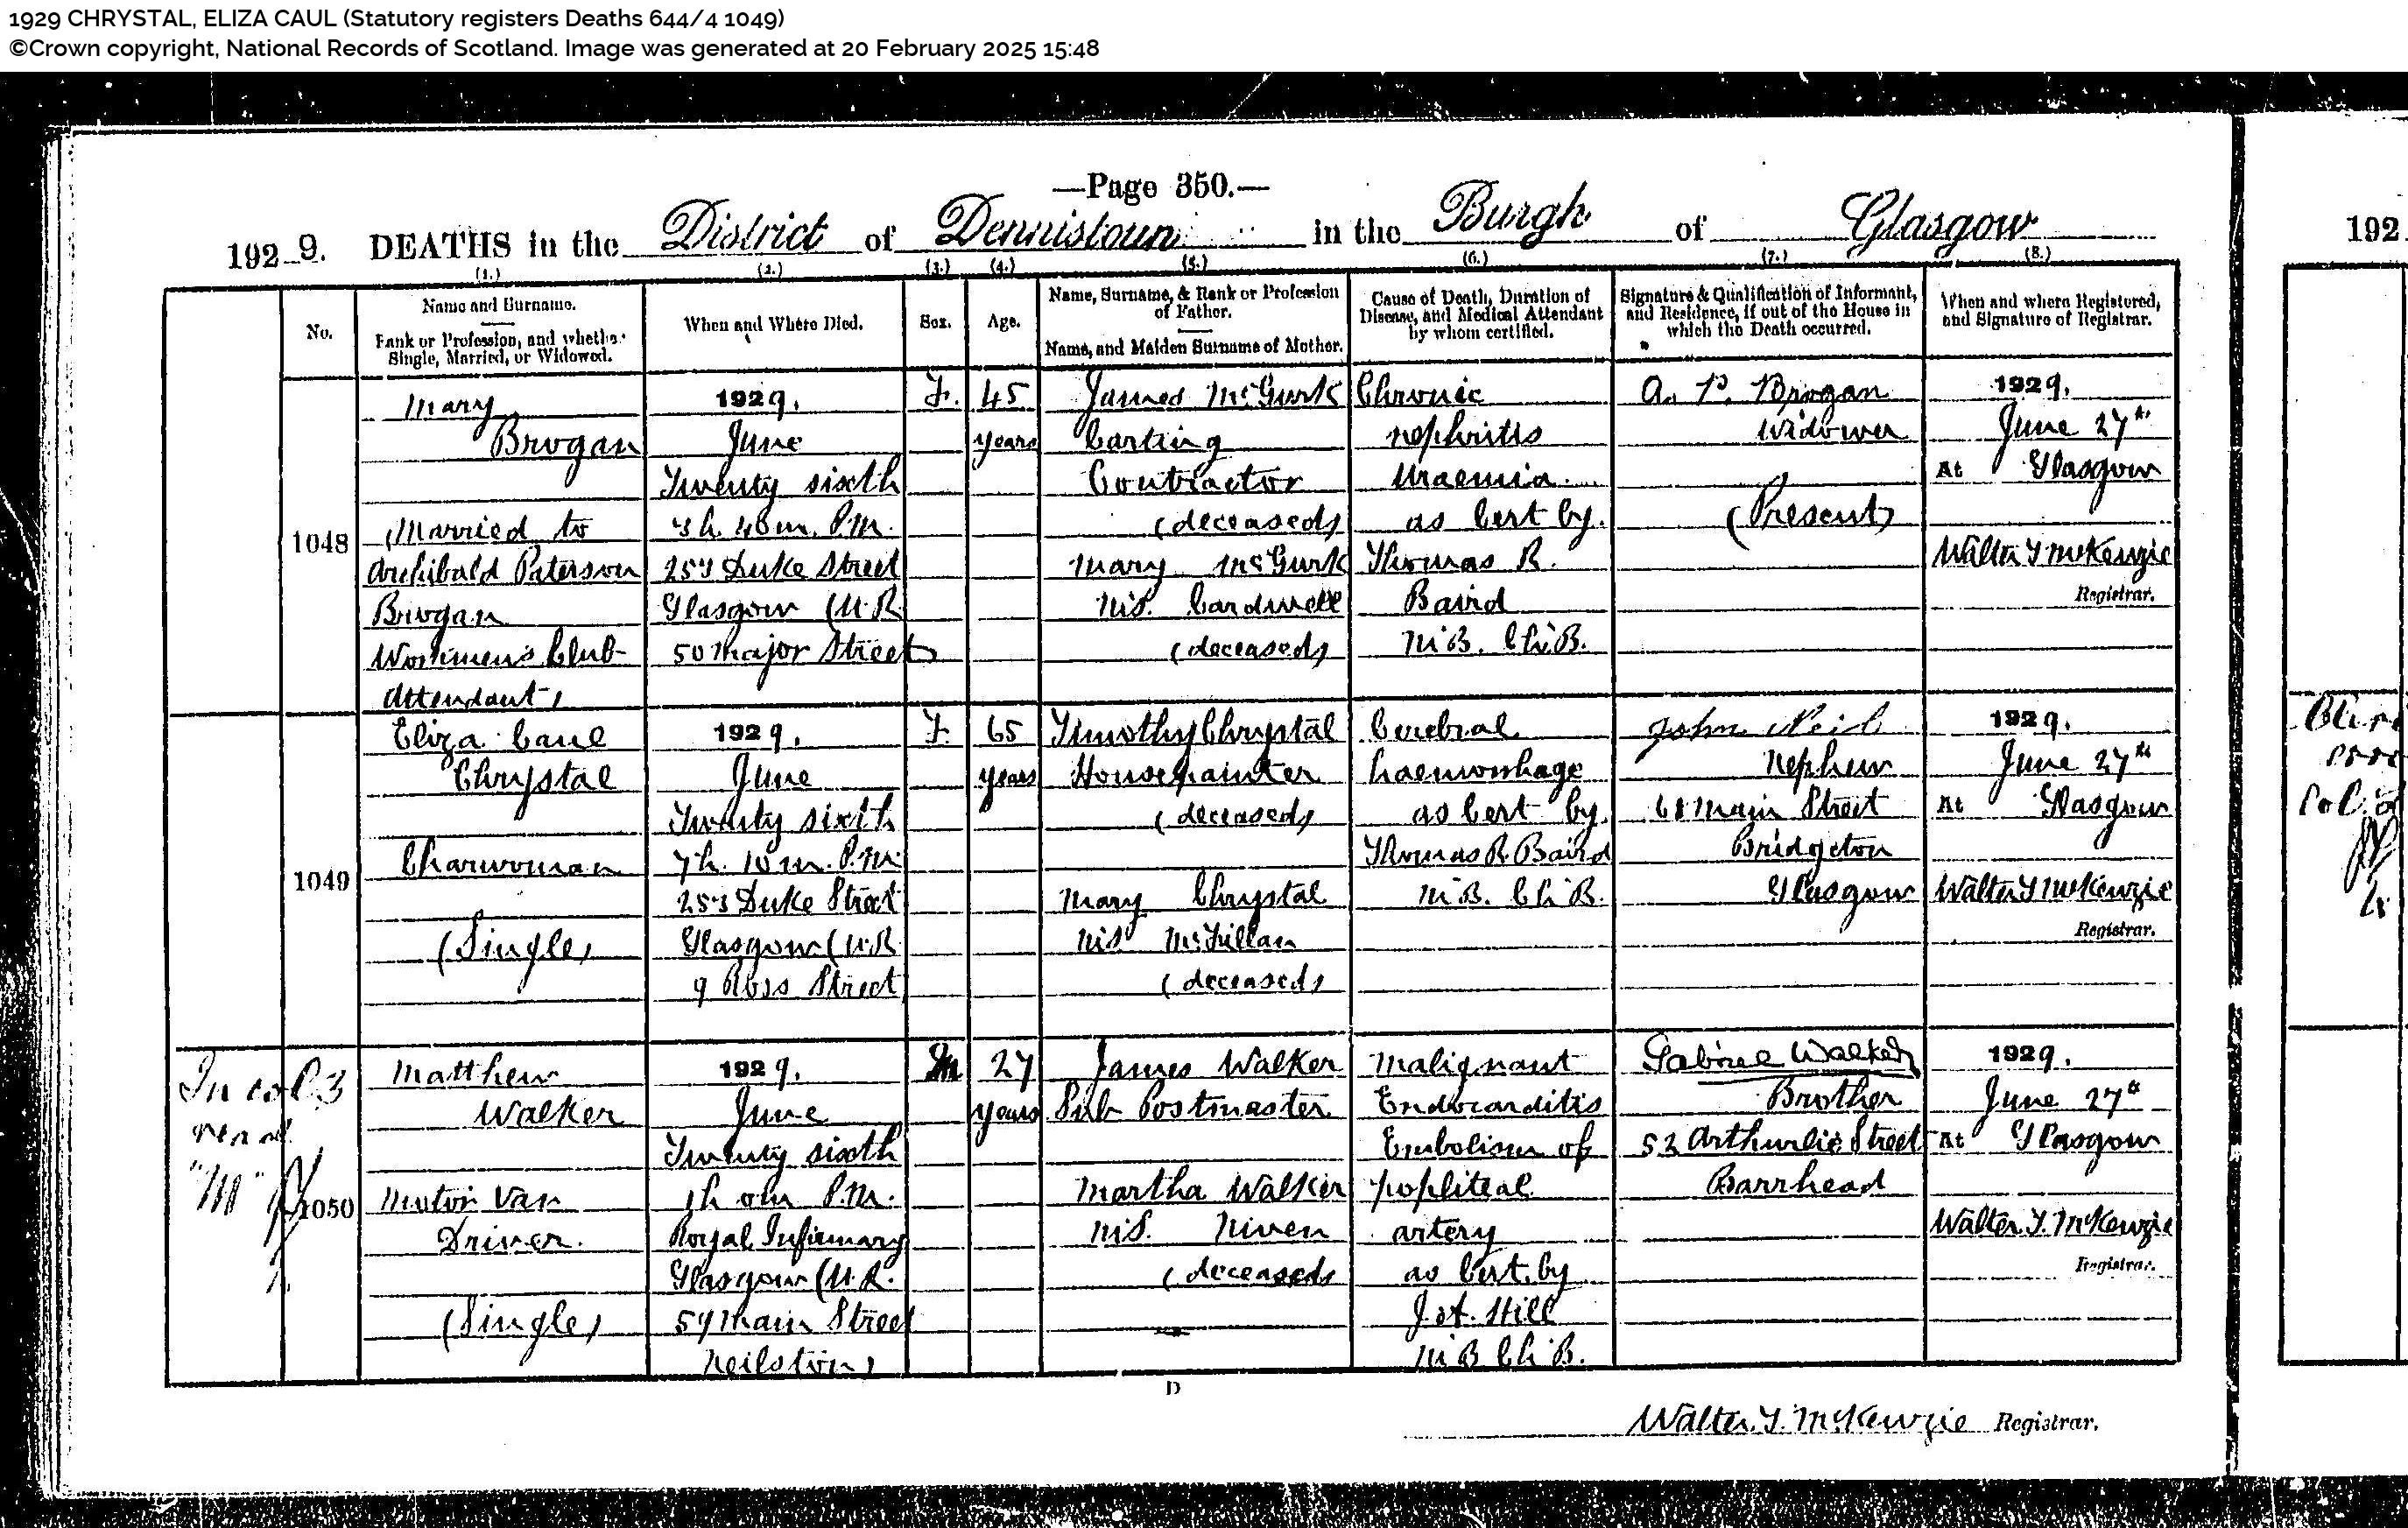 1929 CHRYSTAL, ELIZA CAUL (Statutory registers Deaths 644/4 1049)
©Crown copyright, National Records of Scotland. Image was generated at 20 February 2025 15:48
—Page 350.—
1929. DEATHS in the District of Dennistoun in the Burgh of Glasgow
192
(1.) (2.) (3.) (4.) (5.) (6.) (7.) (8.)
No.
Name and Surname.
Rank or Profession, and whether
Single, Married, or Widowed.
When and Where Died.
Sex.
Age.
Name, Surname, & Rank or Profession
of Father.
Name, and Maiden Surname of Mother.
Cause of Death, Duration of
Disease, and Medical Attendant
by whom certified.
Signature & Qualification of Informant,
and Residence, if out of the House in
which the Death occurred.
When and where Registered,
and Signature of Registrar.
1048
Mary
Brogan
(Married to
Archibald Paterson
Brogan
Workmen's Club
Attendant)
1929.
June
Twenty sixth
3h. 40m. P.M.
253 Duke Street
Glasgow (U.R.
50 Major Street)
F.
45
years
James McGurk
Carting
Contractor
(deceased)
Mary McGurk
M.S. Cardwell
(deceased)
Chronic
nephritis
Uraemia.
as Cert by.
Thomas R.
Baird
M.B. Ch.B.
A. P. Brogan
Widower
(Present)
1929.
June 27th
At Glasgow
Walter T McKenzie
Registrar.
1049
Eliza Caul
Chrystal
Charwoman
(Single)
1929.
June
Twenty sixth
7h. 10m. P.M.
253 Duke Street
Glasgow (U.R.
9 Ross Street
F.
65
years
Timothy Chrystal
Housepainter
(deceased)
Mary Chrystal
M.S. McFillan
(deceased)
Cerebral
haemorrhage
as Cert by.
Thomas R. Baird
M.B. Ch.B.
John Neil
Nephew
68 Main Street
Bridgeton
Glasgow
1929.
June 27th
At Glasgow
Walter T McKenzie
Registrar.
In col. 3
read
"M"
1050
Matthew
Walker
Motor Van
Driver.
(Single)
1929.
June
Twenty sixth
1h 0m P.M.
Royal Infirmary
Glasgow (U.R.
59 Main Street
Neilston)
M
27
years
James Walker
Sub Postmaster
Martha Walker
M.S. Niven
(deceased)
Malignant
Endocarditis
Embolism of
popliteal
artery
as Cert. by
J. A. Hill
M B Ch B.
Gabriel Walker
Brother
52 Arthurlie Street
Barrhead
1929.
June 27th
At Glasgow
Walter T. McKenzie
Registrar.
D
Walter T. McKenzie Registrar.